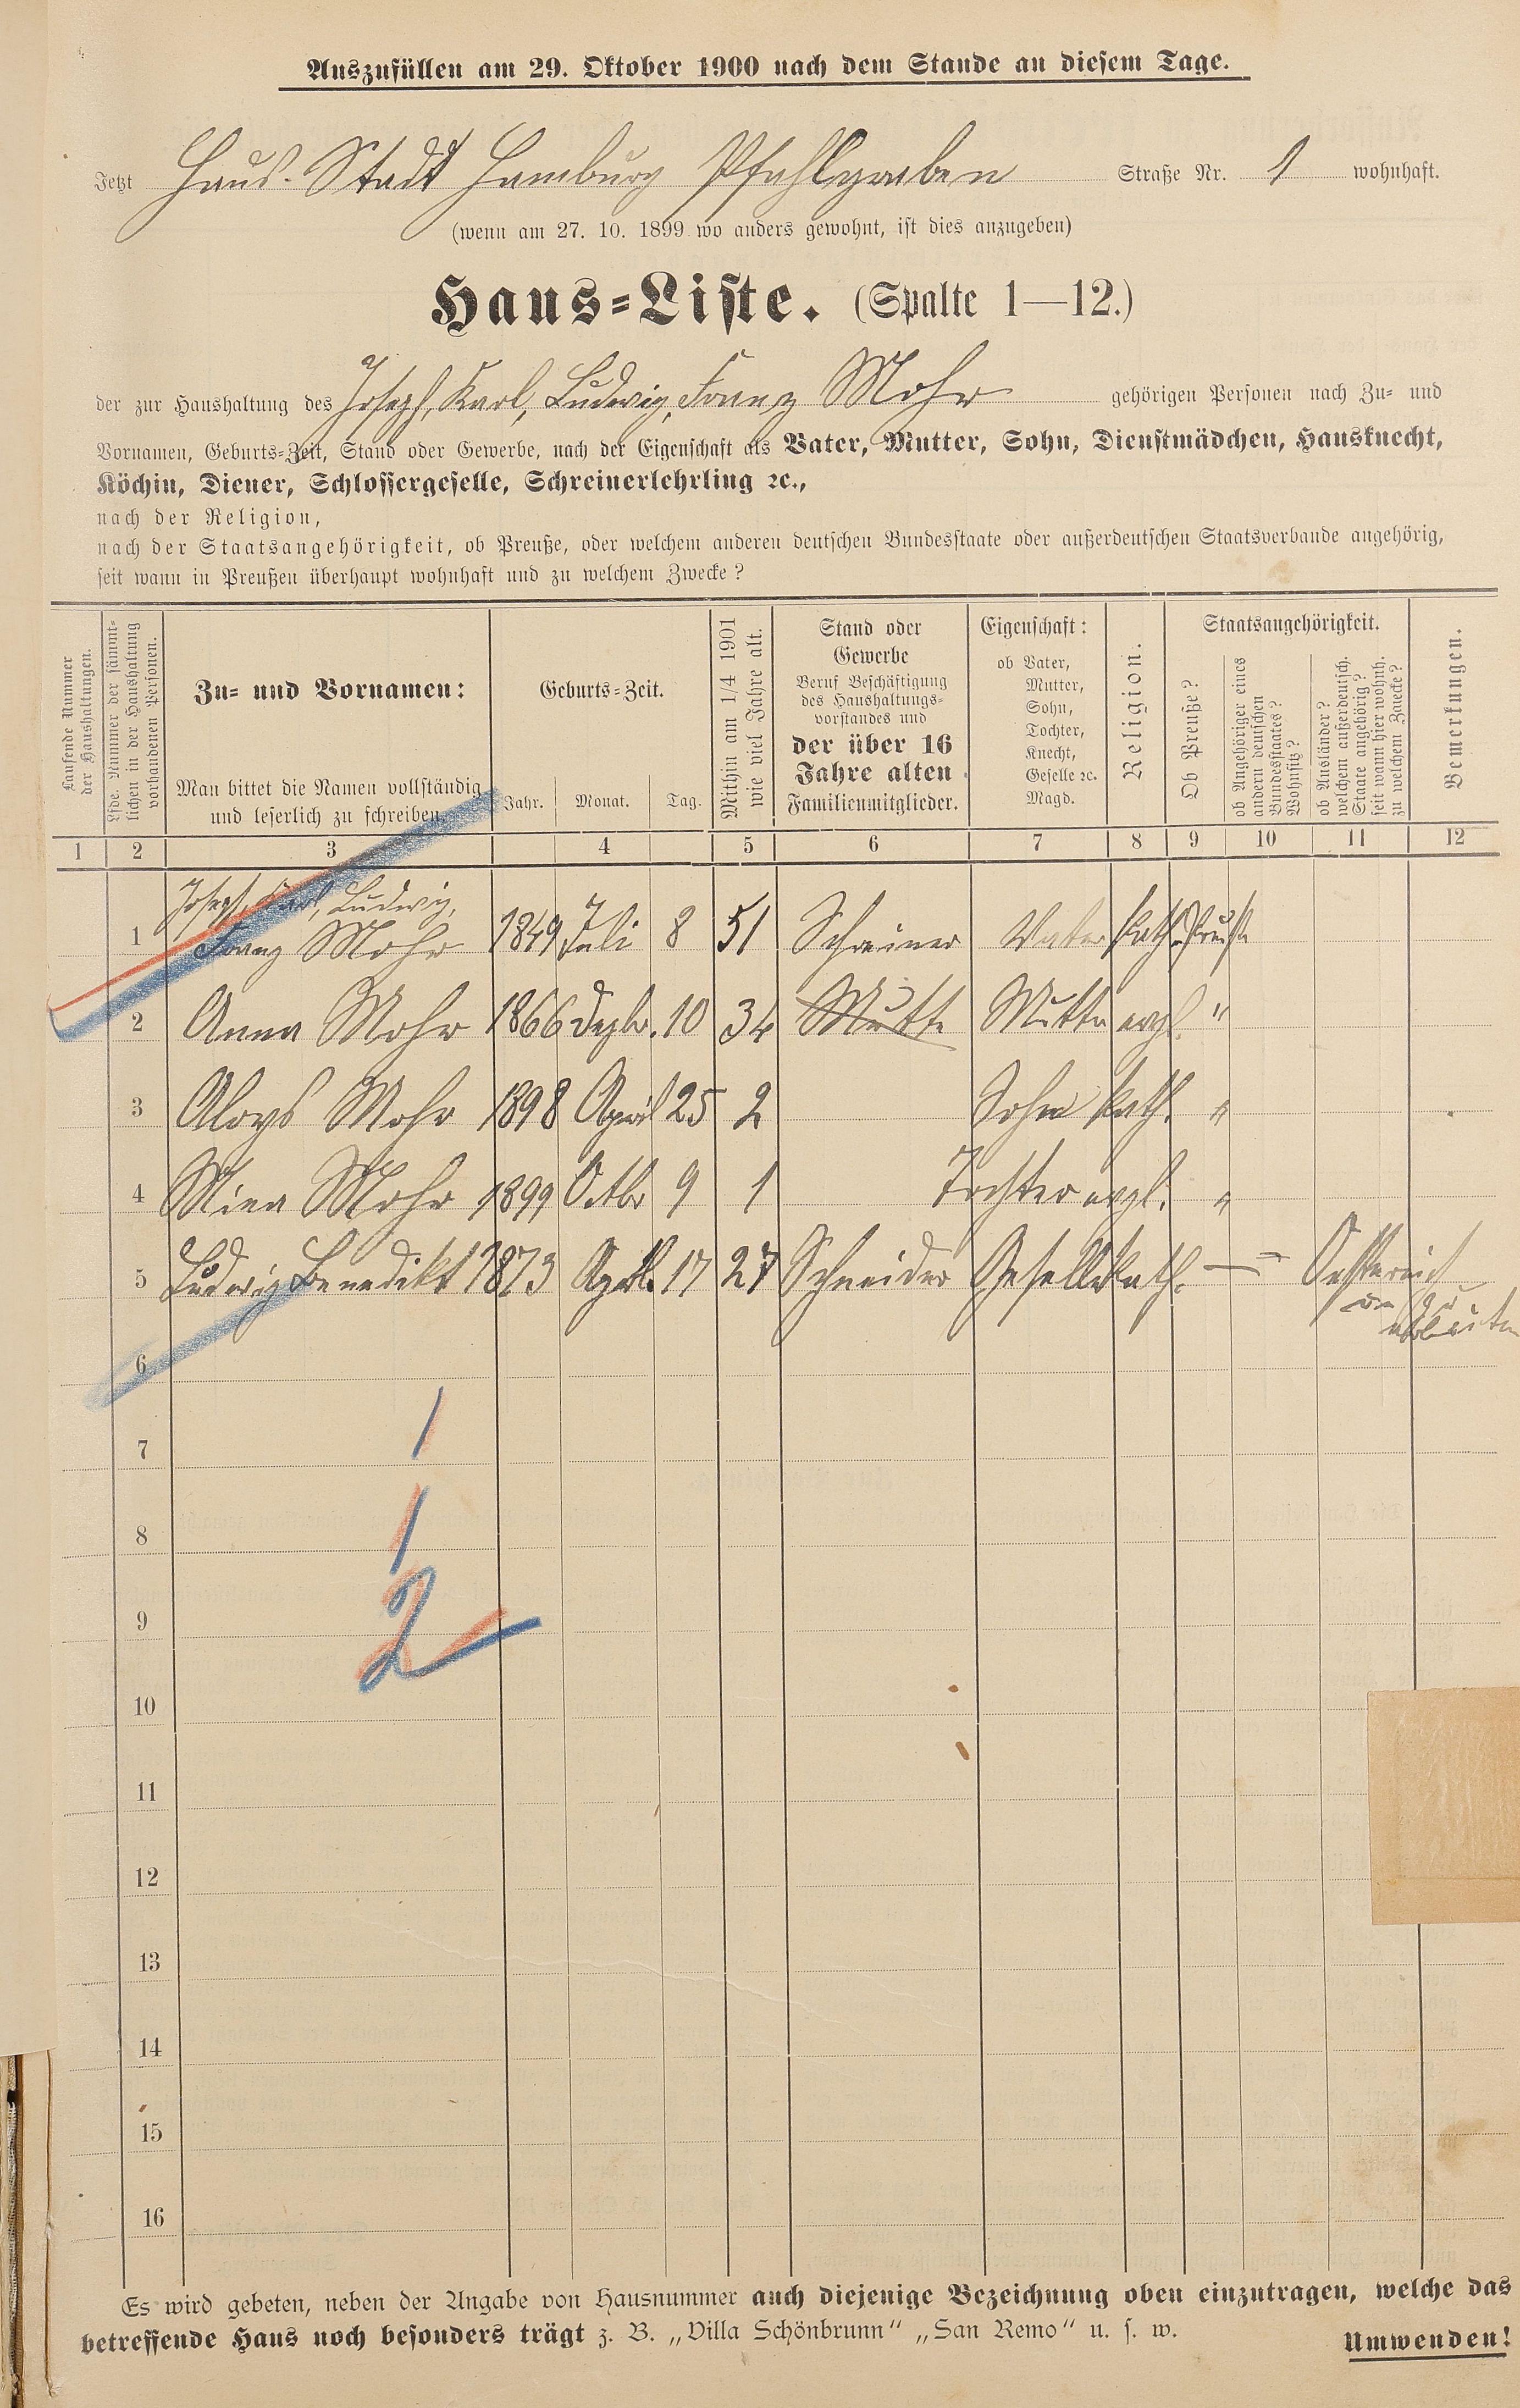 Auszufüllen am 29. Oktober 1900 nach dem Stande an diesem Tage.
Jetzt Haus. Stadt Hamburg Pfahlgraben Straße Nr. 1 wohnhaft.
(wenn am 27. 10. 1899 wo anders gewohnt, ist dies anzugeben)
Haus-Liste. (Spalte 1—12.)
der zur Haushaltung des Joseph, Karl, Ludwig, Franz Mohr gehörigen Personen nach Zu- und
Vornamen, Geburts-Zeit, Stand oder Gewerbe, nach der Eigenschaft als Vater, Mutter, Sohn, Dienstmädchen, Hausknecht,
Köchin, Diener, Schlossergeselle, Schreinerlehrling ꝛc.,
nach der Religion,
nach der Staatsangehörigkeit, ob Preuße, oder welchem anderen deutschen Bundesstaate oder außerdeutschen Staatsverbande angehörig,
seit wann in Preußen überhaupt wohnhaft und zu welchem Zwecke?
Laufende Nummer
der Haushaltungen.
Lfde. Nummer der sämmt-
lichen in der Haushaltung
vorhandenen Personen.
Zu- und Vornamen:
Man bittet die Namen vollständig
und leserlich zu schreiben.
Geburts-Zeit.
Jahr. Monat. Tag.
Mithin am 1/4 1901
wie viel Jahre alt.
Stand oder
Gewerbe
Beruf Beschäftigung
des Haushaltungs-
vorstandes und
der über 16
Jahre alten
Familienmitglieder.
Eigenschaft:
ob Vater,
Mutter,
Sohn,
Tochter,
Knecht,
Geselle ꝛc.
Magd.
Religion.
Staatsangehörigkeit.
Ob Preuße?
ob Angehöriger eines
andern deutschen
Bundesstaates?
Wohnsitz?
ob Ausländer?
welchem außerdeutsch.
Staate angehörig?
seit wann hier wohnh.
zu welchem Zwecke?
Bemerkungen.
1 2 3 4 5 6 7 8 9 10 11 12
Joseph, Karl, Ludwig,
1 Franz Mohr 1849 Juli 8 51 Schreiner Vater kath. Preuße
2 Anna Mohr 1866 Dezbr. 10 34 Mutter Mutter evgl. "
3 Aloys Mohr 1898 April 25 2 Sohn kath. "
4 Mina Mohr 1899 Octbr 9 1 Tochter evgl. "
5 Ludwig Benedikt 1873 April 17 27 Schneider Geselle kath. — = Oesterreich
zu
arbeiten
6
7 1
8 1
9 2
10
11
12
13
14
15
16
Es wird gebeten, neben der Angabe von Hausnummer auch diejenige Bezeichnung oben einzutragen, welche das
betreffende Haus noch besonders trägt z. B. „Villa Schönbrunn" „San Remo" u. s. w.
Umwenden!